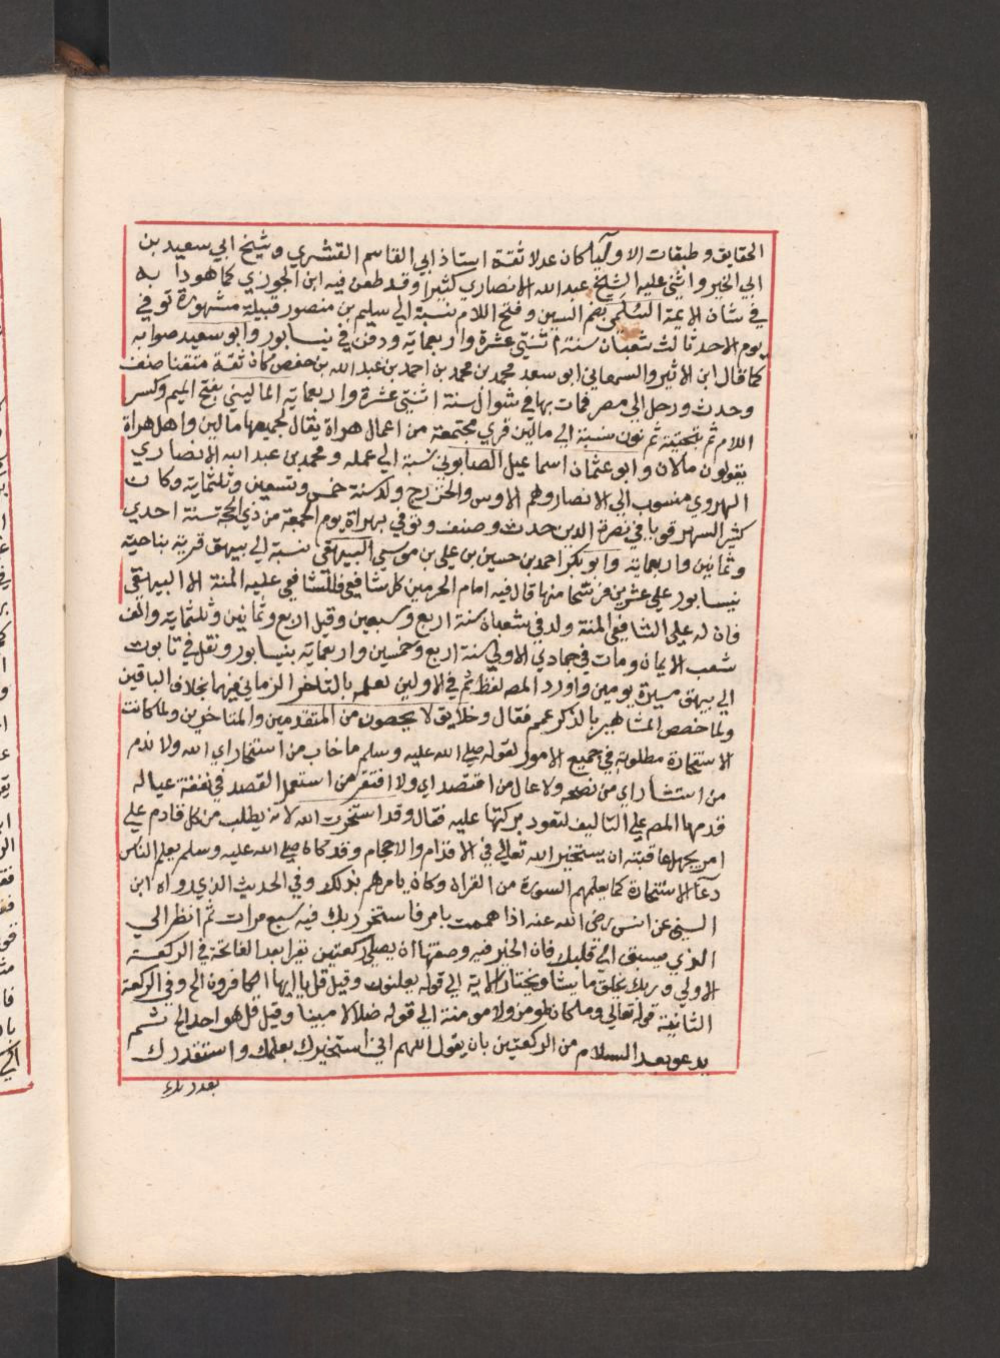 الحقايق وطبقات الاوليا كان عدلا ثقة استاذ ابي القاسم القشري وشيخ ابي سعيد بن
ابي الخير واثنى عليه الشيخ عبد الله الانصاري كثيرا وقد طعن فيه ابن الجوزي كما هو دأبه
في شان الايمة السلمي بضم السين وفتح اللام نسبة الي سليم بن منصور قبيلة مشهورة توفي في
يوم الاحد ثالث شعبان سنة اثنتي عشرة واربعماية ودفن في نيسابور وابو سعيد صوابه
كما قال ابن الاثير والسمعاني ابو سعد محمد بن محمد بن احمد بن عبد الله بن حفص كان ثقة متقنا صنف
وحدث ورحل الي مصر فمات بها في شوال سنة اثنتي عشرة واربعماية الماليني بفتح الميم وكسر
اللام ثم تحتية ثم نون نسبة الي مالين قري مجتمعة من اعمال هراة يقال لجميعها مالين واهل هراة
يقولون مالان وابو عثمان اسماعيل الصابوني نسبة الي عمله ومحمد بن عبد الله الانصاري
الهروي منسوب الي الانصار وهم الاوس والخزرج ولد سنة خمس وتسعين وثلثماية وكان
كثير السهر قويا في نصرة الدين حدث وصنف وتوفي بهراة يوم الجمعة من ذي الحجة سنة احدي
وثمانين واربعماية وابو بكر احمد بن حسين بن علي بن موسي البيهقي نسبة الي بيهق قرية بناحية
نيسابور علي عشرين فرسخا منها قال فيه امام الحرمين كل شافعي فللشافعي عليه المنة الا البيهقي
فان له علي الشافعي المنة ولد في شعبان سنة اربع وسبعين وقيل اربع وثمانين وثلثماية والف
شعب الايمان ومات في جمادي الاولي سنة اربع وخمسين واربعماية بنيسابور ونقل في تابوت
الي بيهق مسيرة يومين واورد المص لفظ ثم في الاولين لعلمه بالتاخر الزماني فيهما بخلاف الباقين
ولما خصص المشاهير بالذكر عمم فقال وخلايق لا يحصون من المتقدمين والمتاخرين ولما كانت
الاستخارة مطلوبة في جميع الامور لقوله صلي الله عليه وسلم ما خاب من استخار اي الله ولا ندم
من استشار اي من نصحه ولا عال من اقتصد اي ولا افتقر من استعمل القصد في نفقة عياله
قدمها المص علي التاليف لتعود بركتها عليه فقال وقد استخرت الله لانه يطلب من كل قادم علي
امر يجهل عاقبته ان يستخير الله تعالي في الاقدام والاحجام وقد كان صلي الله عليه وسلم يعلم الناس
دعآ الاستخارة كما يعلمهم السورة من القران وكان يامرهم بذلك وفي الحديث الذي رواه ابن
السني عن انس رضي الله عنه اذا هممت بامر فاستخر ربك فيه سبع مرات ثم انظر الي
الذي يسبق الي قلبك فان الخير فيه وصفتها ان يصلي ركعتين يقرا بعد الفاتحة في الركعة
الاولي وربك يخلق ما يشا ويختار الاية الي قوله يعلنون وقيل قل يا ايها الكافرون الخ وفي الركعة
الثانية قوله تعالي وما كان لمومن ولا مومنة الي قوله ضلالا مبينا وقيل قل هو احد الخ ثم
يدعو بعد السلام من الركعتين بان يقول اللهم اني استخيرك بعلمك واستقدرك
بقدرتك